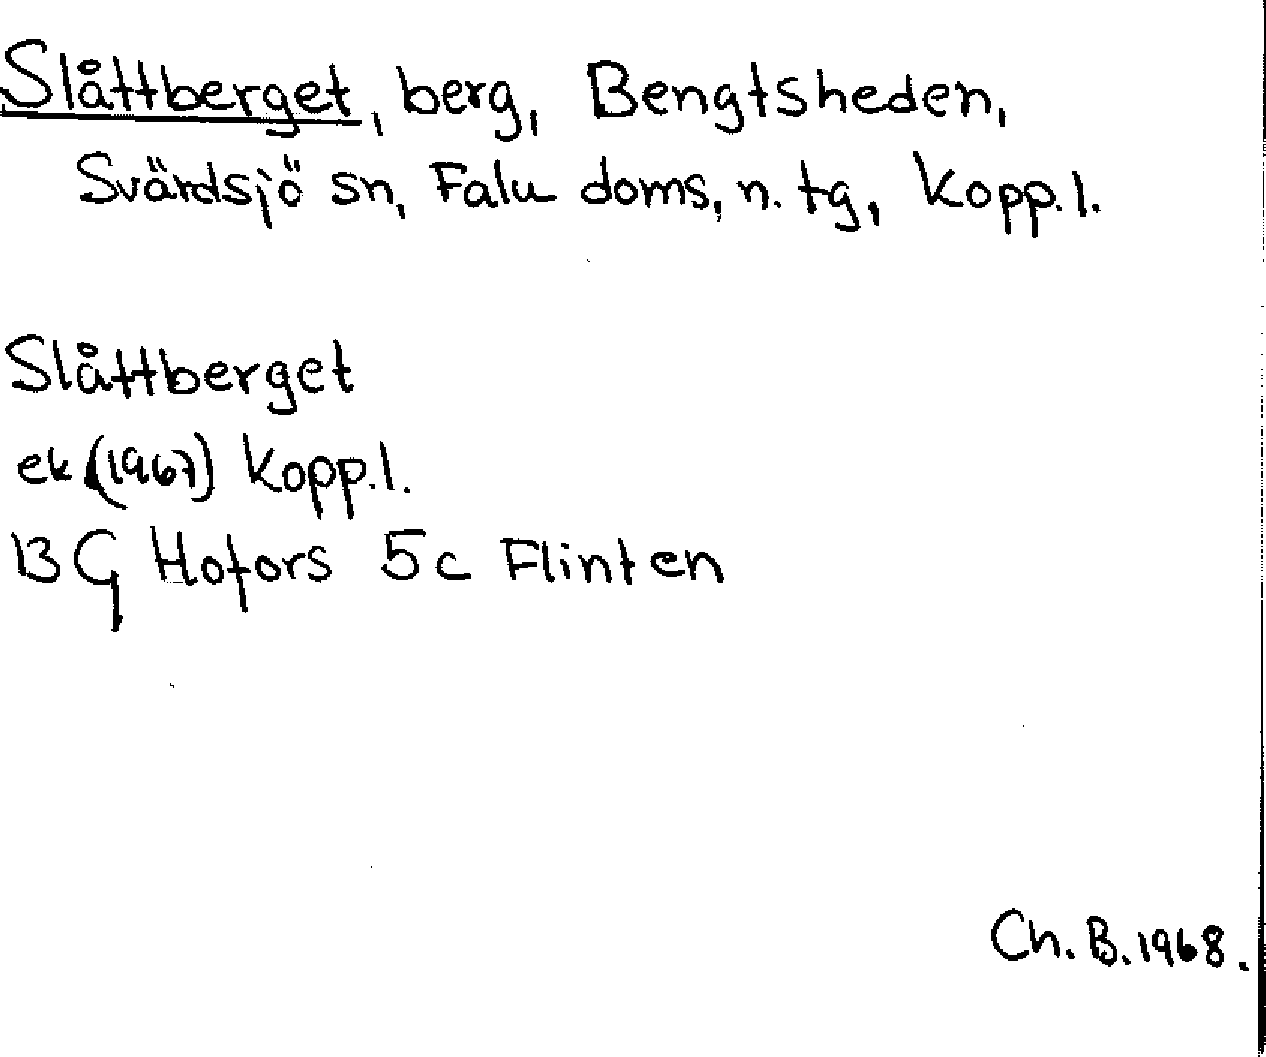 Slåttberget, berg, Bengtsheden,
Svärdsjö sn, Falu doms, n. tg, Kopp. l.
Slåttberget
ek (1967) Kopp. l.
13 G Hofors 5c Flinten
Ch. B. 1968.